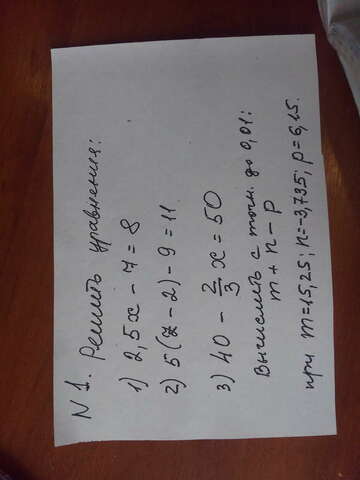 N 1. Решить уравнения:
1) 2,5x - 7 = 8
2) 5(z - 2) - 9 = 11
3) 40 - 2/3 x = 50
Вычислить с точн. до 0,01:
m + n - p
при m = 15,25; n = -3,735; p = 6,15.